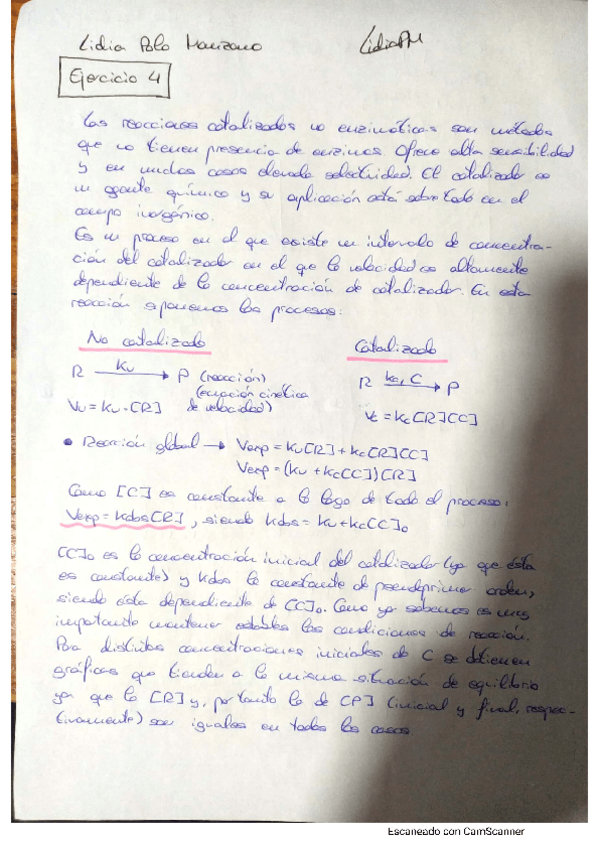 Lidia Polo Manzano LidiaPM
Ejercicio 4
Las reacciones catalizadas no enzimáticas son métodos
que no tienen presencia de enzimas. Ofrece alta sensibilidad
y en muchos casos elevada selectividad. El catalizador es
un agente químico y su aplicación está sobre todo en el
campo inorgánico.
Es un proceso en el que existe un intervalo de concentra-
ción del catalizador en el que la velocidad es altamente
dependiente de la concentración de catalizador. En esta
reacción suponemos los procesos:
No catalizado Catalizado
R Ku → P (reacción) R kc, C → P
(ecuación cinética
Vu = Ku · [R] de velocidad) Vc = kc[R][C]
• Reacción global → Vexp = Ku[R] + kc[R][C]
Vexp = (Ku + kc[C])[R]
Como [C] es constante a lo largo de todo el proceso:
Vexp = Kobs[R], siendo Kobs = Ku + kc[C]o
[C]o es la concentración inicial del catalizador (ya que ésta
es constante) y Kobs la constante de pseudoprimer orden,
siendo ésta dependiente de [C]o. Como ya sabemos es muy
importante mantener estables las condiciones de reacción.
Para distintas concentraciones iniciales de C se obtienen
gráficas que tienden a la misma situación de equilibrio
ya que la [R] y, por tanto la de [P] (inicial y final, respec-
tivamente) son iguales en todos los casos
Escaneado con CamScanner